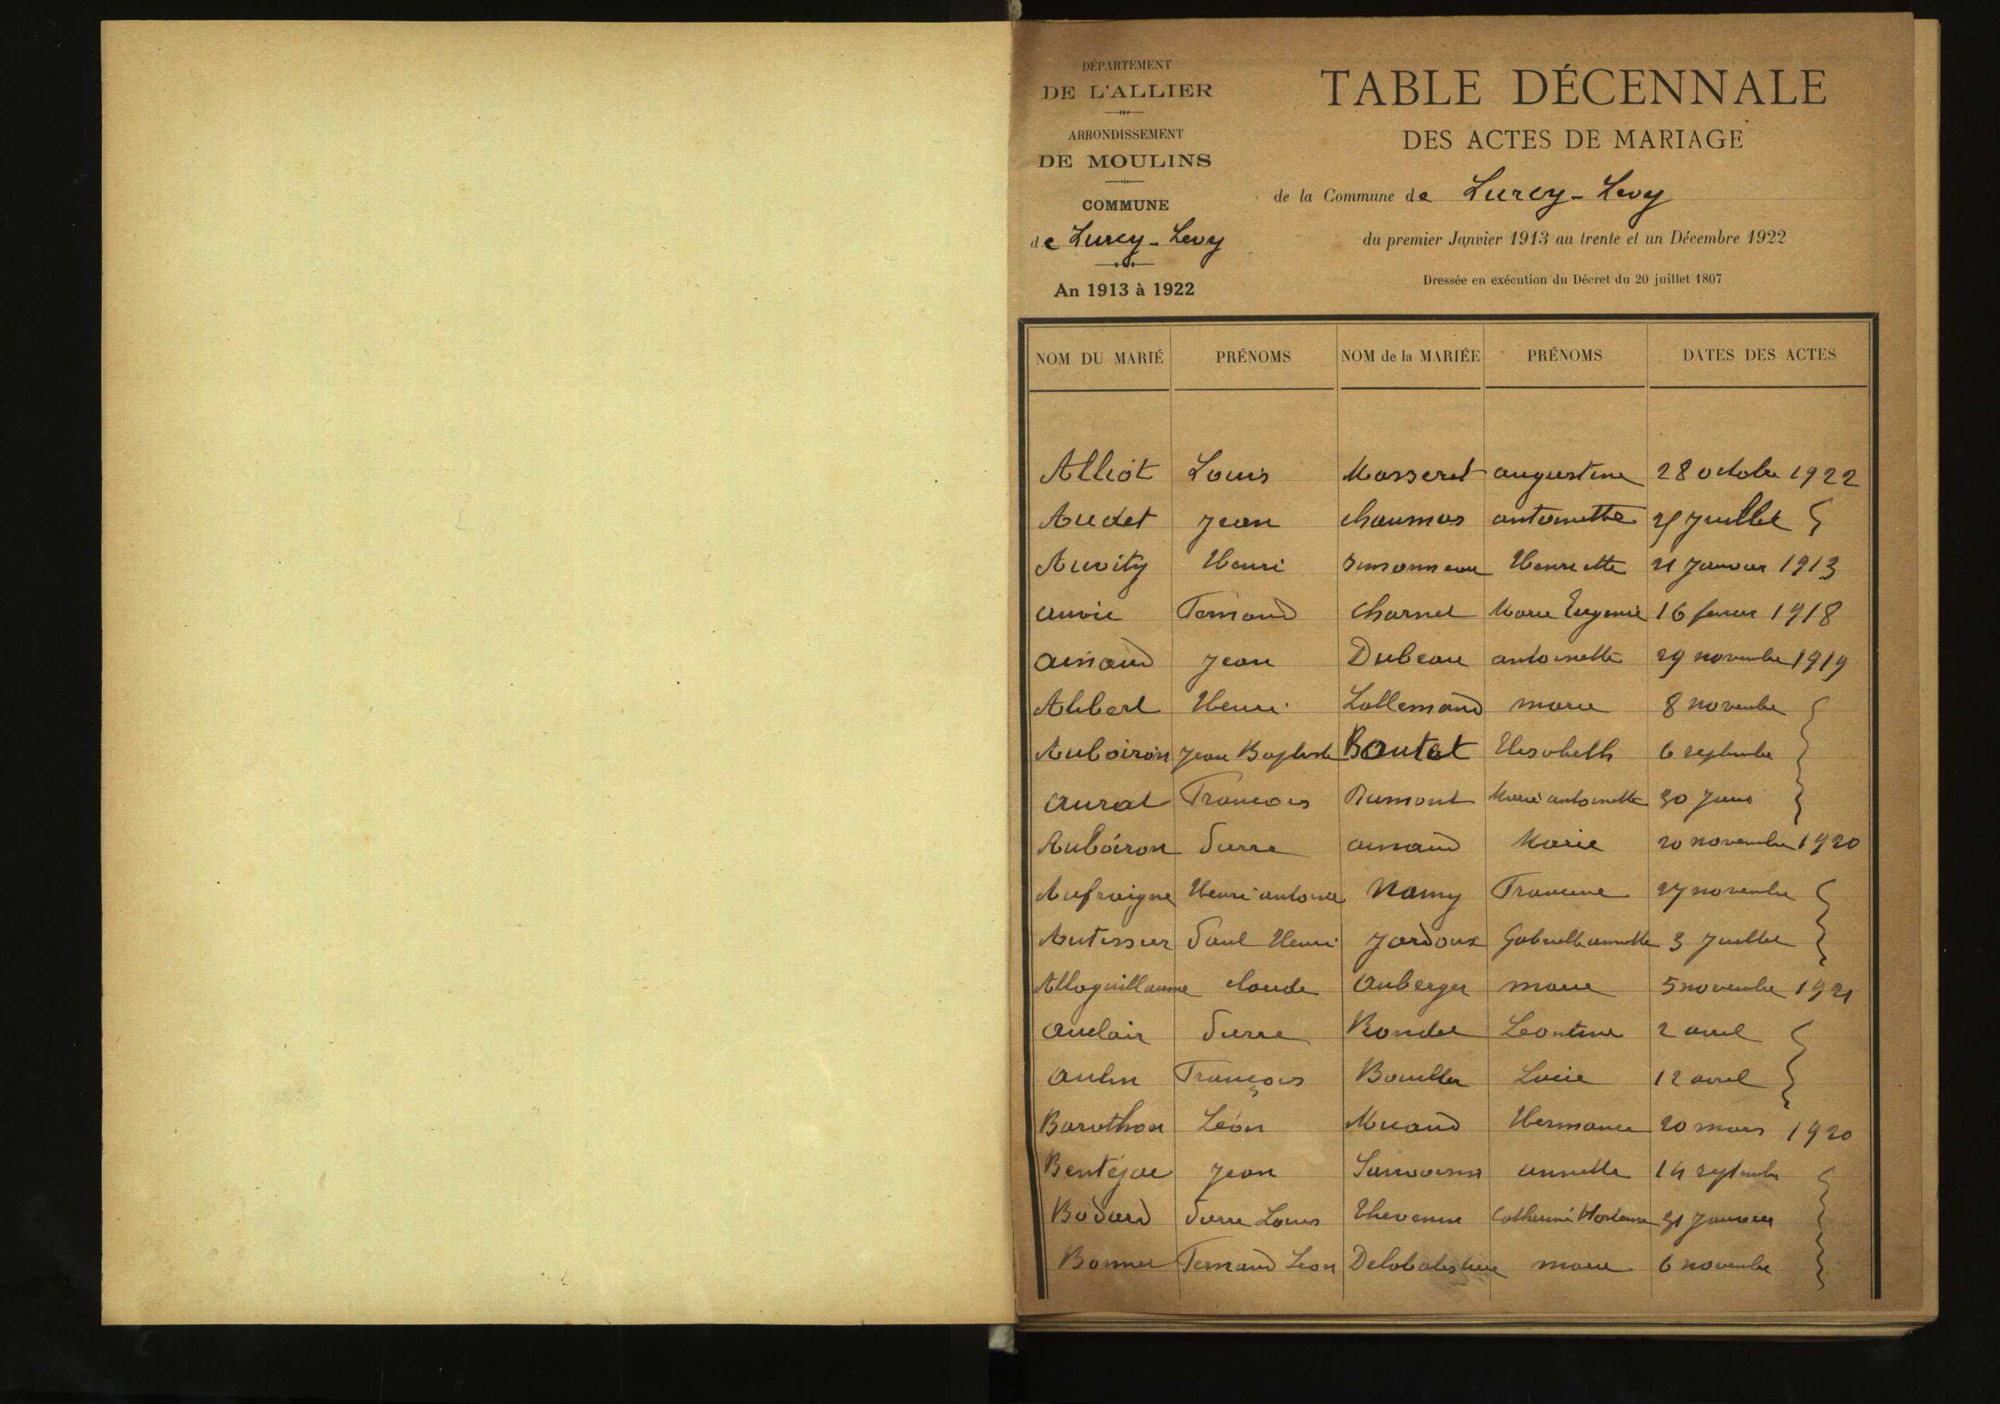 DÉPARTEMENT
DE L'ALLIER
ARRONDISSEMENT
DE MOULINS
COMMUNE
de Lurcy-Levy
An 1913 à 1922
TABLE DÉCENNALE
DES ACTES DE MARIAGE
de la Commune de Lurcy-Levy
du premier Janvier 1913 au trente et un Décembre 1922
Dressée en exécution du Décret du 20 juillet 1807
NOM DU MARIÉ PRÉNOMS NOM de la MARIÉE PRÉNOMS DATES DES ACTES
Alliot Louis Masseret augustine 28 octobre 1922
Audet Jean chaumas antoinette 25 Juillet
Auvity Henri Simonneau Henriette 21 Janvier 1913
auvie Fernand charnet Marie Eugenie 16 fevrier 1918
arnaud Jean Dubeau antoinette 29 novembre 1919
Alibert Henri Lallemand marie 8 novembre
Auboiron Jean Baptiste Boutet Elisabeth 6 septembre
aurat François Dumont Marie antoinette 30 Juin
Auboiron Pierre arnaud Marie 20 novembre 1920
Aufraigne Henri antoine Namy Francine 27 novembre
Autissier Paul Henri Jardoux Gabrielle annette 3 Juillet
Allaguillaume claude Auberger marie 5 novembre 1921
auclair Pierre Rondet Leontine 2 avril
aulin François Bouiller Lucie 12 avril
Barathon Léon Micaud Hermance 20 mars 1920
Bentéjac Jean annette 14 septembre
Bodard Pierre Louis Thevenin Catherine Hortense 31 Janvier
Bonnet Fernand Leon Delabalestine marie 6 novembre